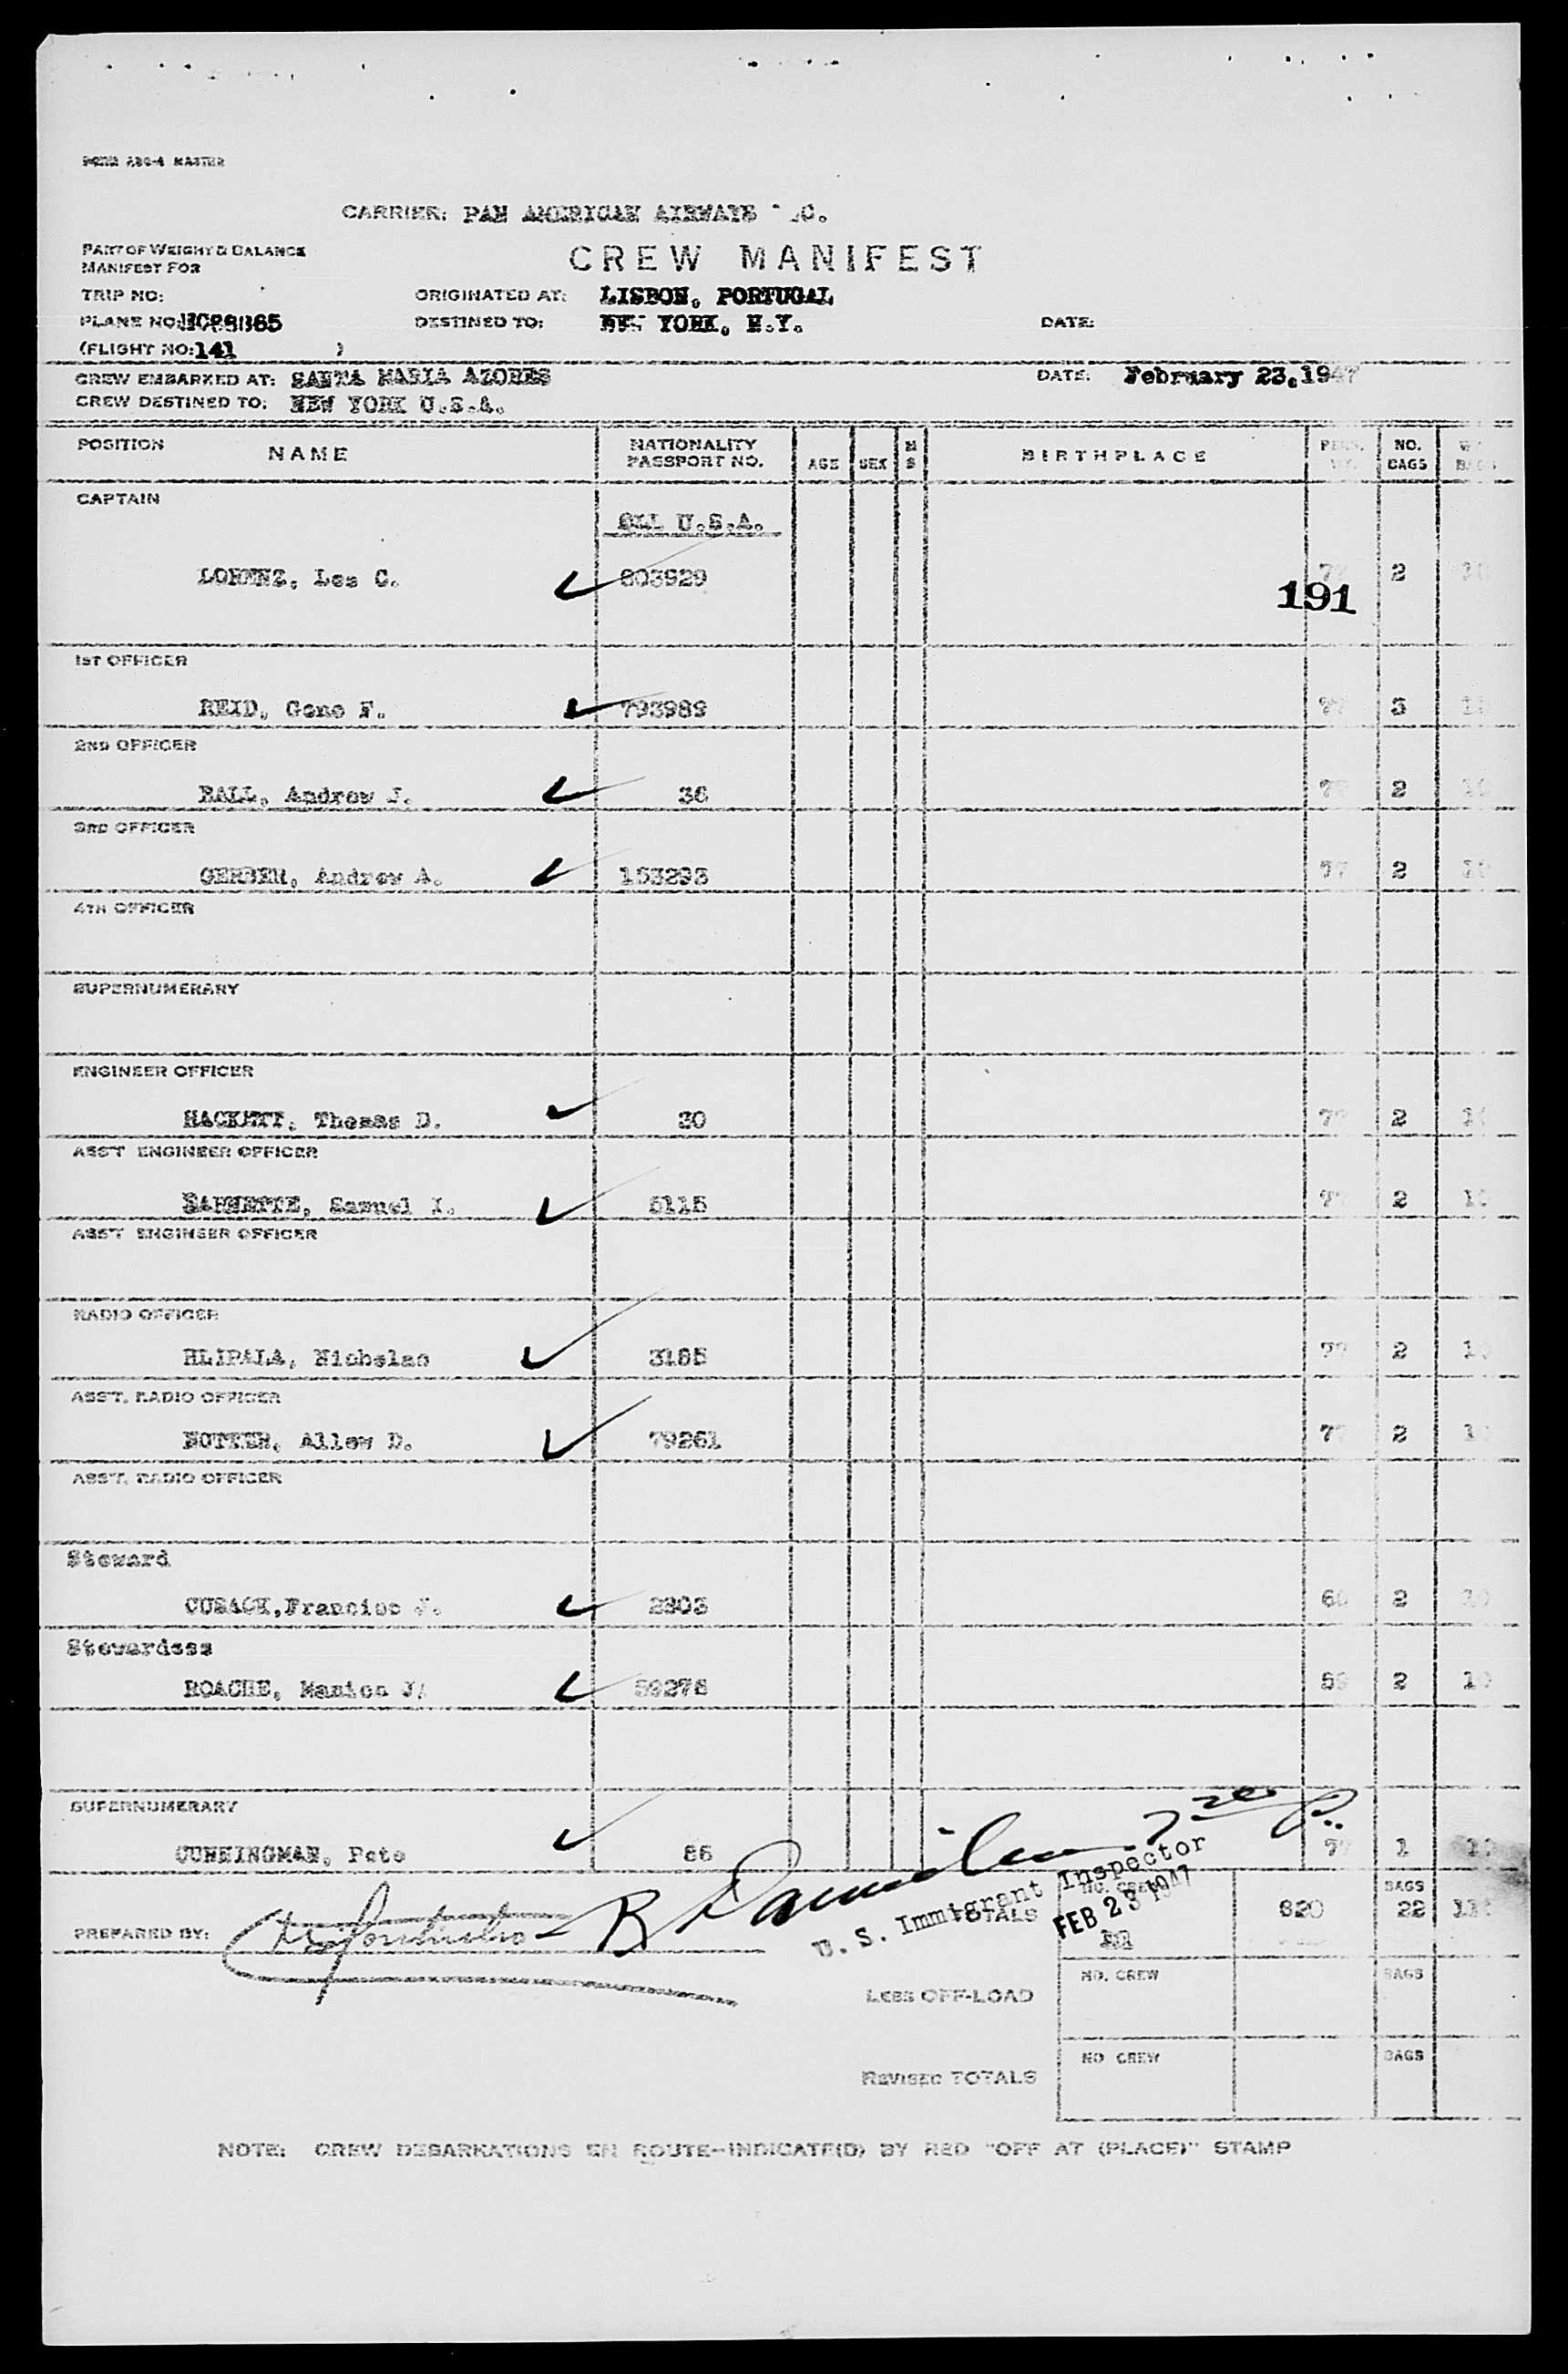 CARRIER: PAN AMERICAN AIRWAYS
PART OF WEIGHT & BALANCE
MANIFEST FOR
CREW MANIFEST
TRIP NO:
ORIGINATED AT: LISBON, PORTUGAL
PLANE NO:
DESTINED TO: NEW YORK, N.Y.
DATE:
(FLIGHT NO: 141 )
CREW EMBARKED AT: SANTA MARIA AZORES
DATE: February 23, 1947
CREW DESTINED TO: NEW YORK U.S.A.
POSITION NAME NATIONALITY PASSPORT NO. AGE SEX M S BIRTHPLACE PERS. WT. NO. BAGS
CAPTAIN
ALL U.S.A.
LORENZ, Lee C. 803929 2
191
1ST OFFICER
REID, Gene F. 793989 77 3
2ND OFFICER
BALL, Andrew J. 36 2
3RD OFFICER
GERBER, Andrew A. 153293 77 2
4TH OFFICER
SUPERNUMERARY
ENGINEER OFFICER
HACKETT, Thomas D. 20 2
ASS'T ENGINEER OFFICER
BARNETTE, Samuel I. 5115 2
ASS'T ENGINEER OFFICER
RADIO OFFICER
HLIPALA, Nicholas 3185 77 2
ASS'T. RADIO OFFICER
Allew D. 79261 2
ASS'T. RADIO OFFICER
Steward
CUSACK, Francisc J. 2303 2
Stewardess
ROACHE, 59276 2
SUPERNUMERARY
CUNNINGMAN, Pete 86 1
U. S. Immigrant Inspector
FEB 23 1947
PREPARED BY:
TOTALS NO. CREW 820 BAGS 22
LESS OFF-LOAD NO. CREW BAGS
REVISED TOTALS NO CREW BAGS
NOTE: CREW DEBARKATIONS EN ROUTE-INDICATE(D) BY RED "OFF AT (PLACE)" STAMP